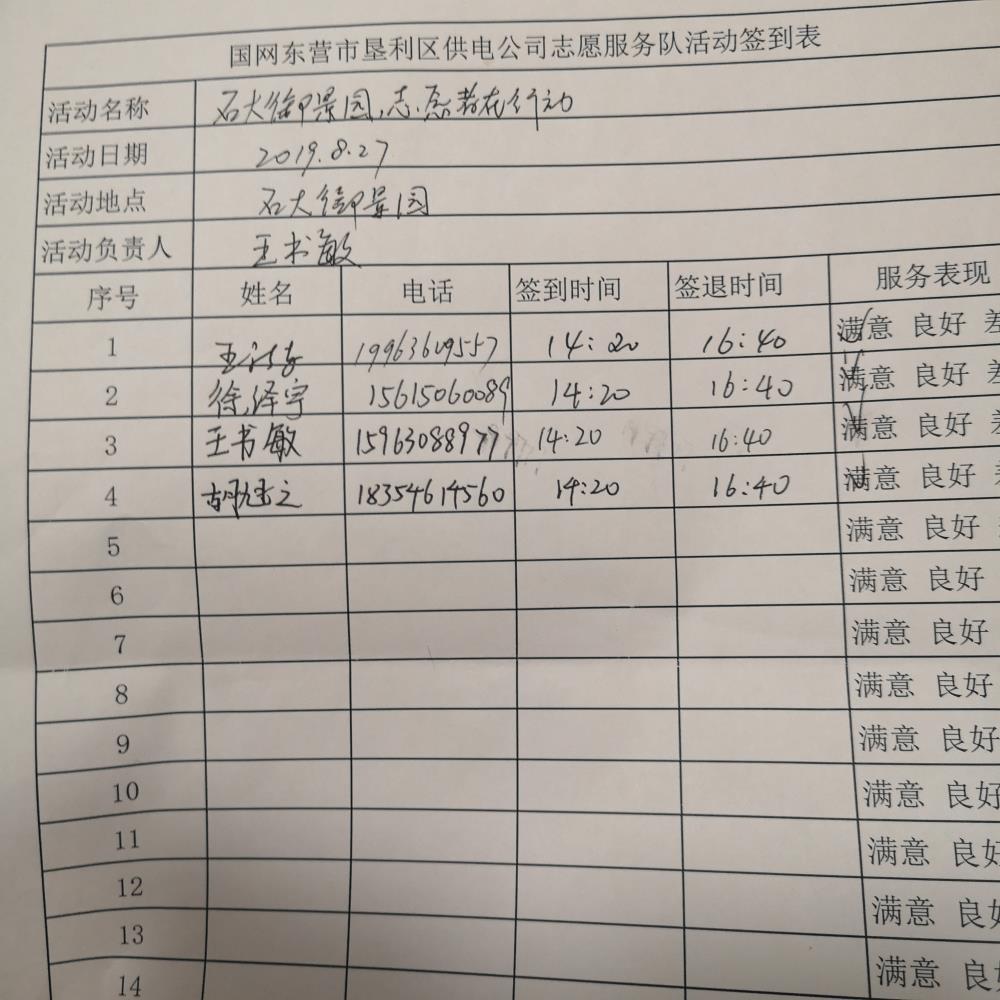 国网东营市垦利区供电公司志愿服务队活动签到表
活动名称 石大御景园,志愿者在行动
活动日期 2019.8.27
活动地点 石大御景园
活动负责人 王书敏
序号 姓名 电话 签到时间 签退时间 服务表现
1 王 19963609557 14:20 16:40 满意 良好 差
2 徐泽宇 15615060089 14:20 16:40 满意 良好 差
3 王书敏 15963088977 14:20 16:40 满意 良好 差
4 胡 18354614560 14:20 16:40 满意 良好 差
5 满意 良好
6 满意 良好
7 满意 良好
8 满意 良好
9 满意 良好
10 满意 良好
11 满意 良好
12 满意 良好
13 满意 良好
14